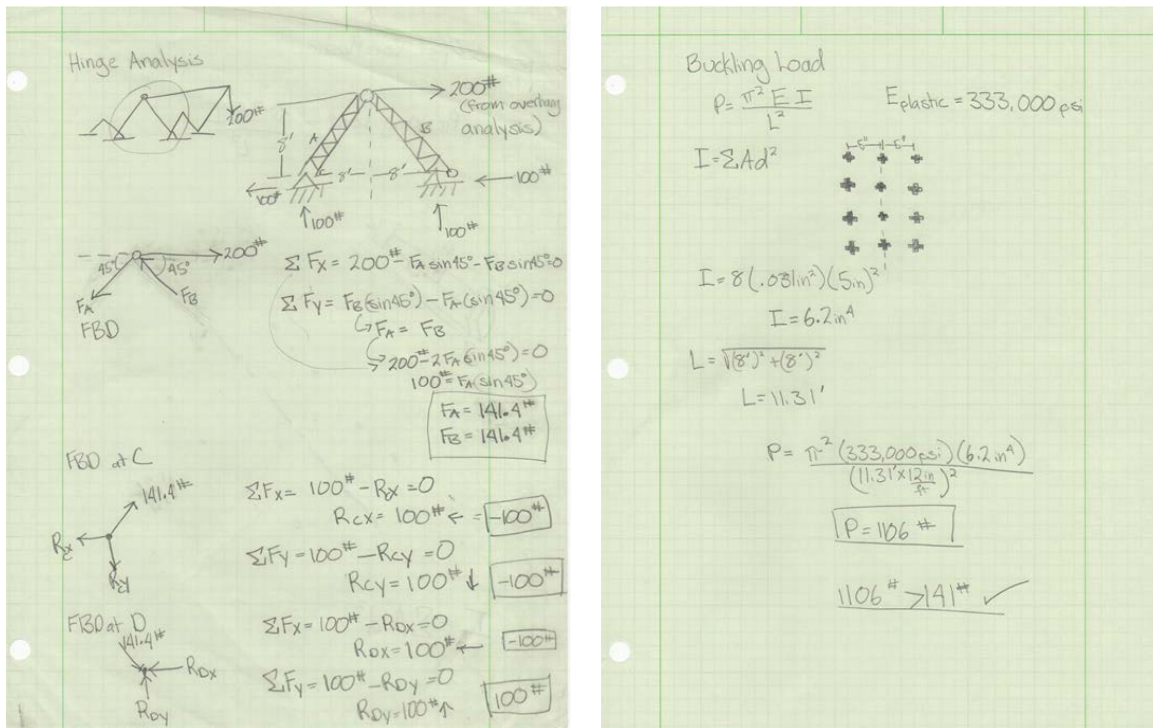 Hinge Analysis
100#
200#
(from overhang
analysis)
8'
A
B
8'
8'
100#
100#
100#
100#
200#
45°
45°
FA
FB
FBD
ΣFx = 200# - FA sin45° - FB sin45° = 0
ΣFy = FB(sin45°) - FA(sin45°) = 0
↳ FA = FB
200# - 2FA(sin45°) = 0
100# = FA(sin45°)
FA = 141.4#
FB = 141.4#
FBD at C
141.4#
Rcx
Rcy
ΣFx = 100# - Rcx = 0
Rcx = 100# ← = -100#
ΣFy = 100# - Rcy = 0
Rcy = 100# ↓ -100#
FBD at D
141.4#
RDx
RDy
ΣFx = 100# - RDx = 0
RDx = 100# ← -100#
ΣFy = 100# - RDy = 0
RDy = 100# ↑ 100#
Buckling Load
P = π² E I / L²
Eplastic = 333,000 psi
I = ΣAd²
5" 5"
I = 8(.031in²)(5in)²
I = 6.2in⁴
L = √(8')² + (8')²
L = 11.31'
P = π² (333,000psi)(6.2in⁴) / (11.31' × 12in/ft)²
P = 1106#
1106# > 141# ✓